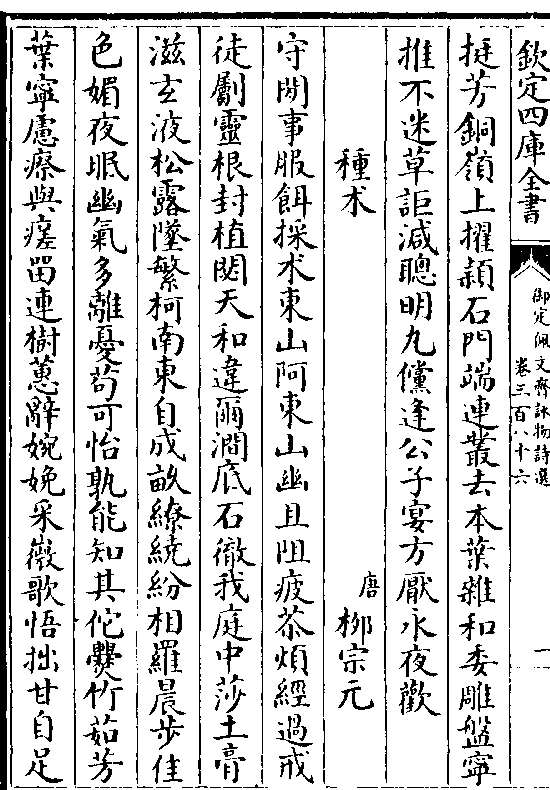 欽定四庫全書
御定佩文齋詠物詩選
卷三百八十六
一
挺芳銅嶺上擢穎石門端連叢去本葉雜和委雕盤寧
推不迷草詎減聰明丸儻逢公子宴方厭永夜歡
種术
唐柳宗元
守閒事服餌採术東山阿東山幽且阻疲苶煩經過戒
徒劚靈根封植閟天和違爾澗底石徹我庭中莎土膏
滋玄液松露墜繁柯南東自成畝繚繞紛相羅晨步佳
色媚夜眠幽氣多離憂苟可怡孰能知其佗爨竹茹芳
葉寧慮瘵與瘥畱連樹蕙辭婉娩采薇歌悟拙甘自足